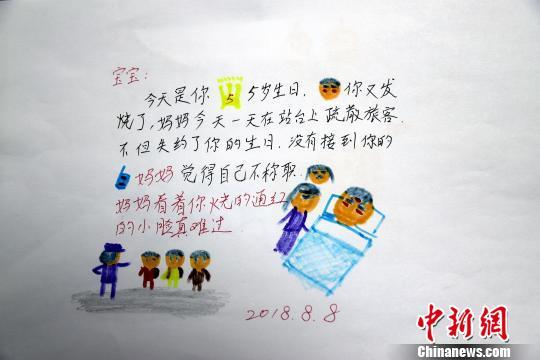 宝宝：
今天是你 5 5岁生日.你又发
烧了,妈妈今天一天在站台上疏散旅客.
不但失约了你的生日.没有接到你的
妈妈觉得自己不称职.
妈妈看着你火烧的通红
的小脸真难过
2018.8.8
中新网
Chinanews.com